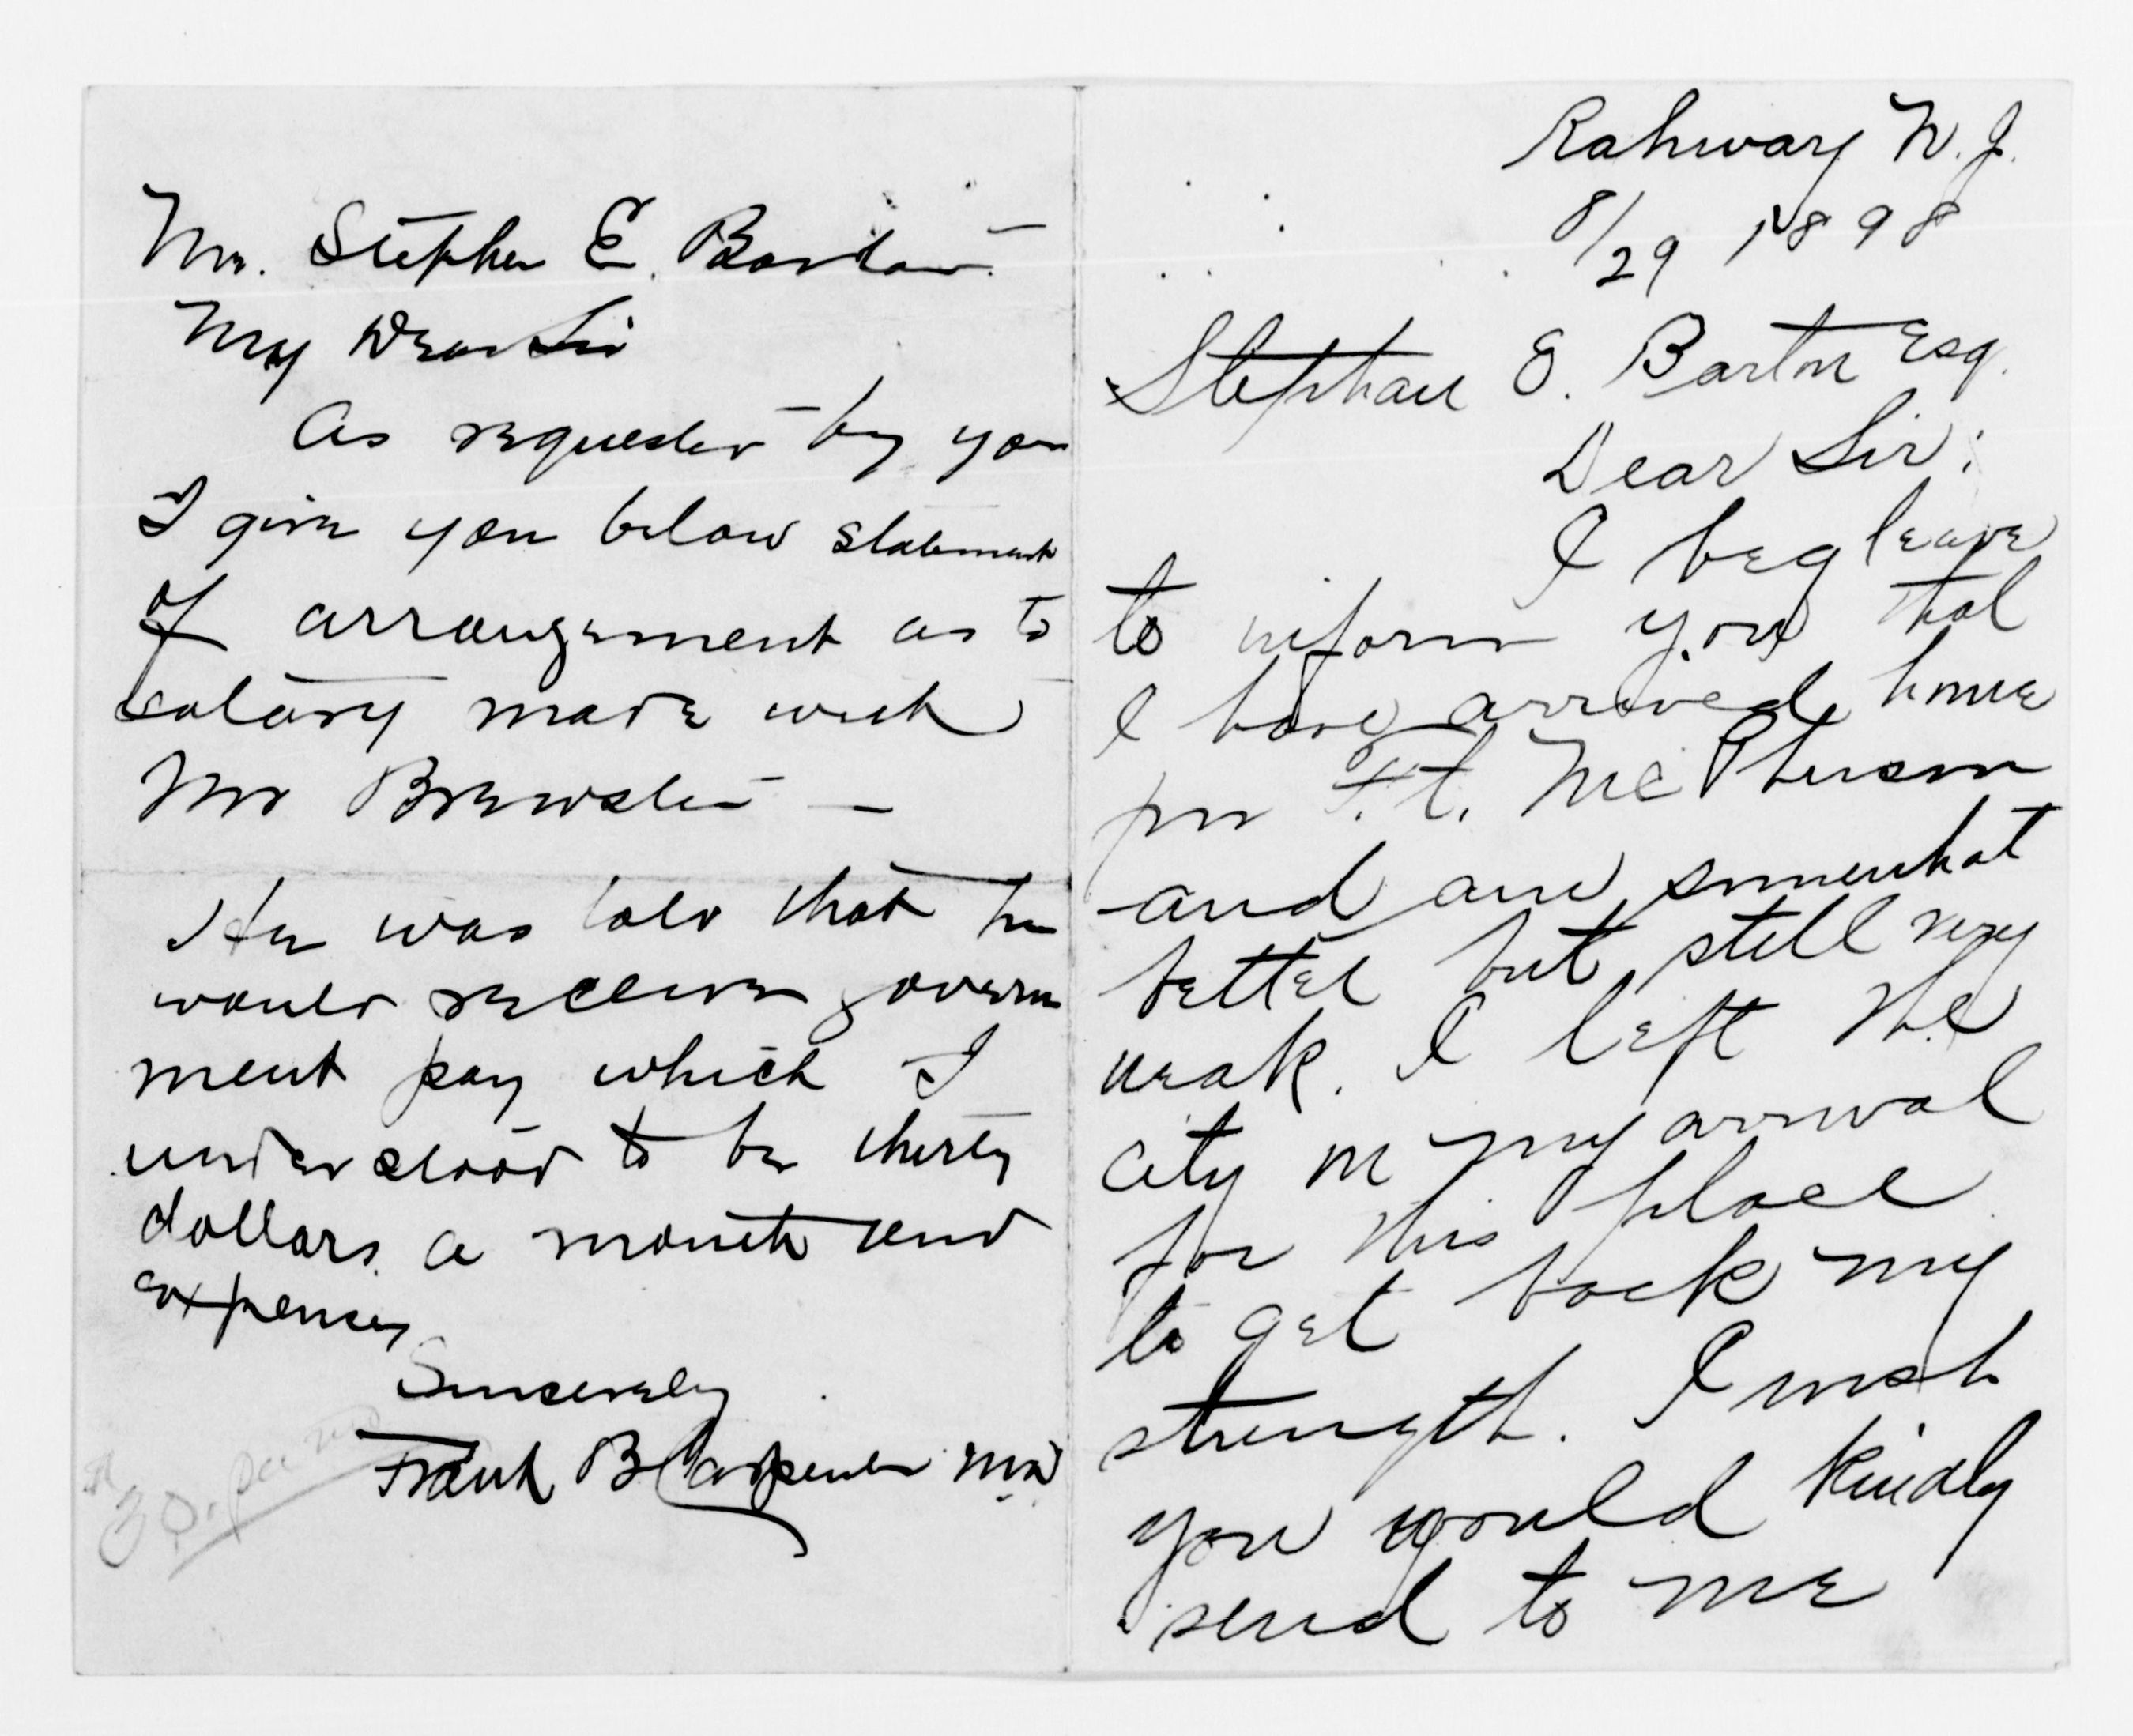 Mr. Stephen E. Barton
My Dear Sir
As requested by you
I give you below statement
of arrangement as to
salary made with
Mr Brewster —
He was told that he
would receive govern
ment pay which I
understood to be thirty
dollars a month and
expenses
Sincerely
Frank B Carpenter MD
Rahway N.J.
8/29 1898
Stephan E. Barton Esq.
Dear Sir:
I beg leave
to inform you that
I have arrived home
from Ft. McPherson
and am somewhat
better but still very
weak. I left the
city on my arrival
for this place
to get back my
strength. I wish
you would kindly
send to me